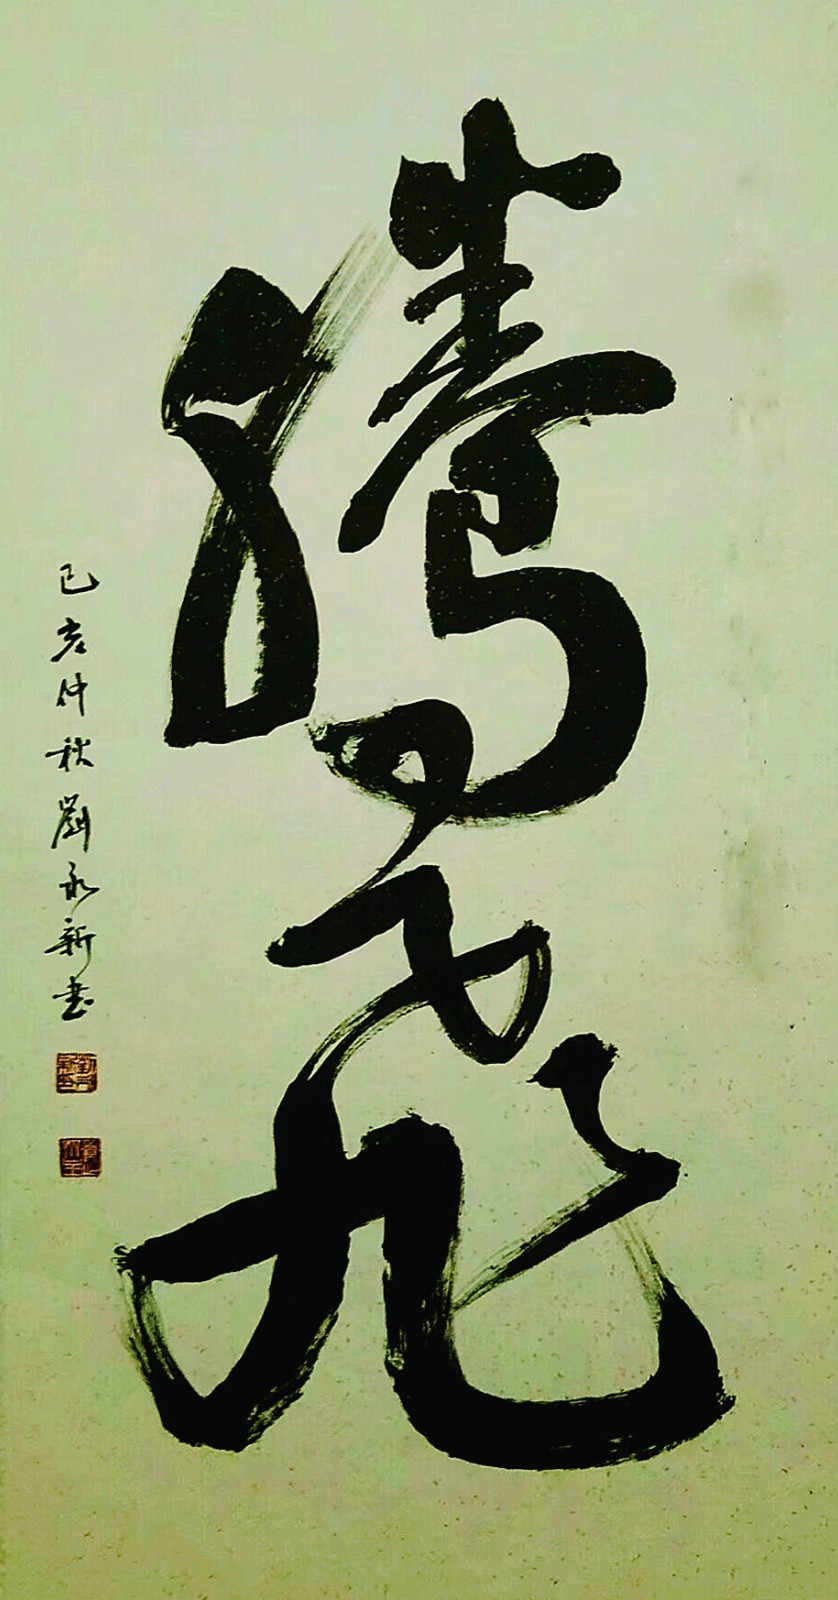 騰飛
己亥仲秋劉永新書